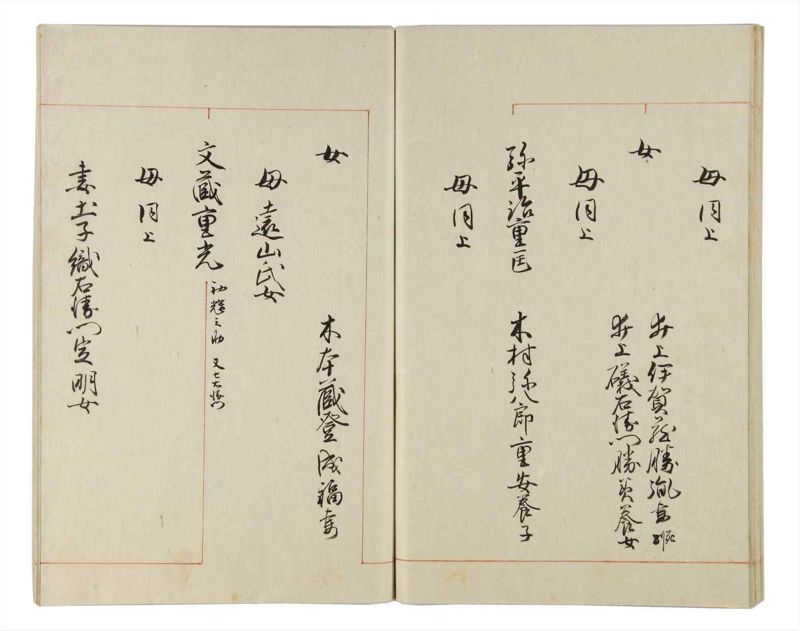 母同上
女
井上伊賀蔵勝胤妻 離死
井上礒右衛門勝英養女
母同上
弥平治重匡
木村弥八郎重安養子
母同上
女
木本蔵登成福妻
母遠山氏女
文蔵重光 初輝之助 又七右衛門
母同上
妻土子織右衛門定明女